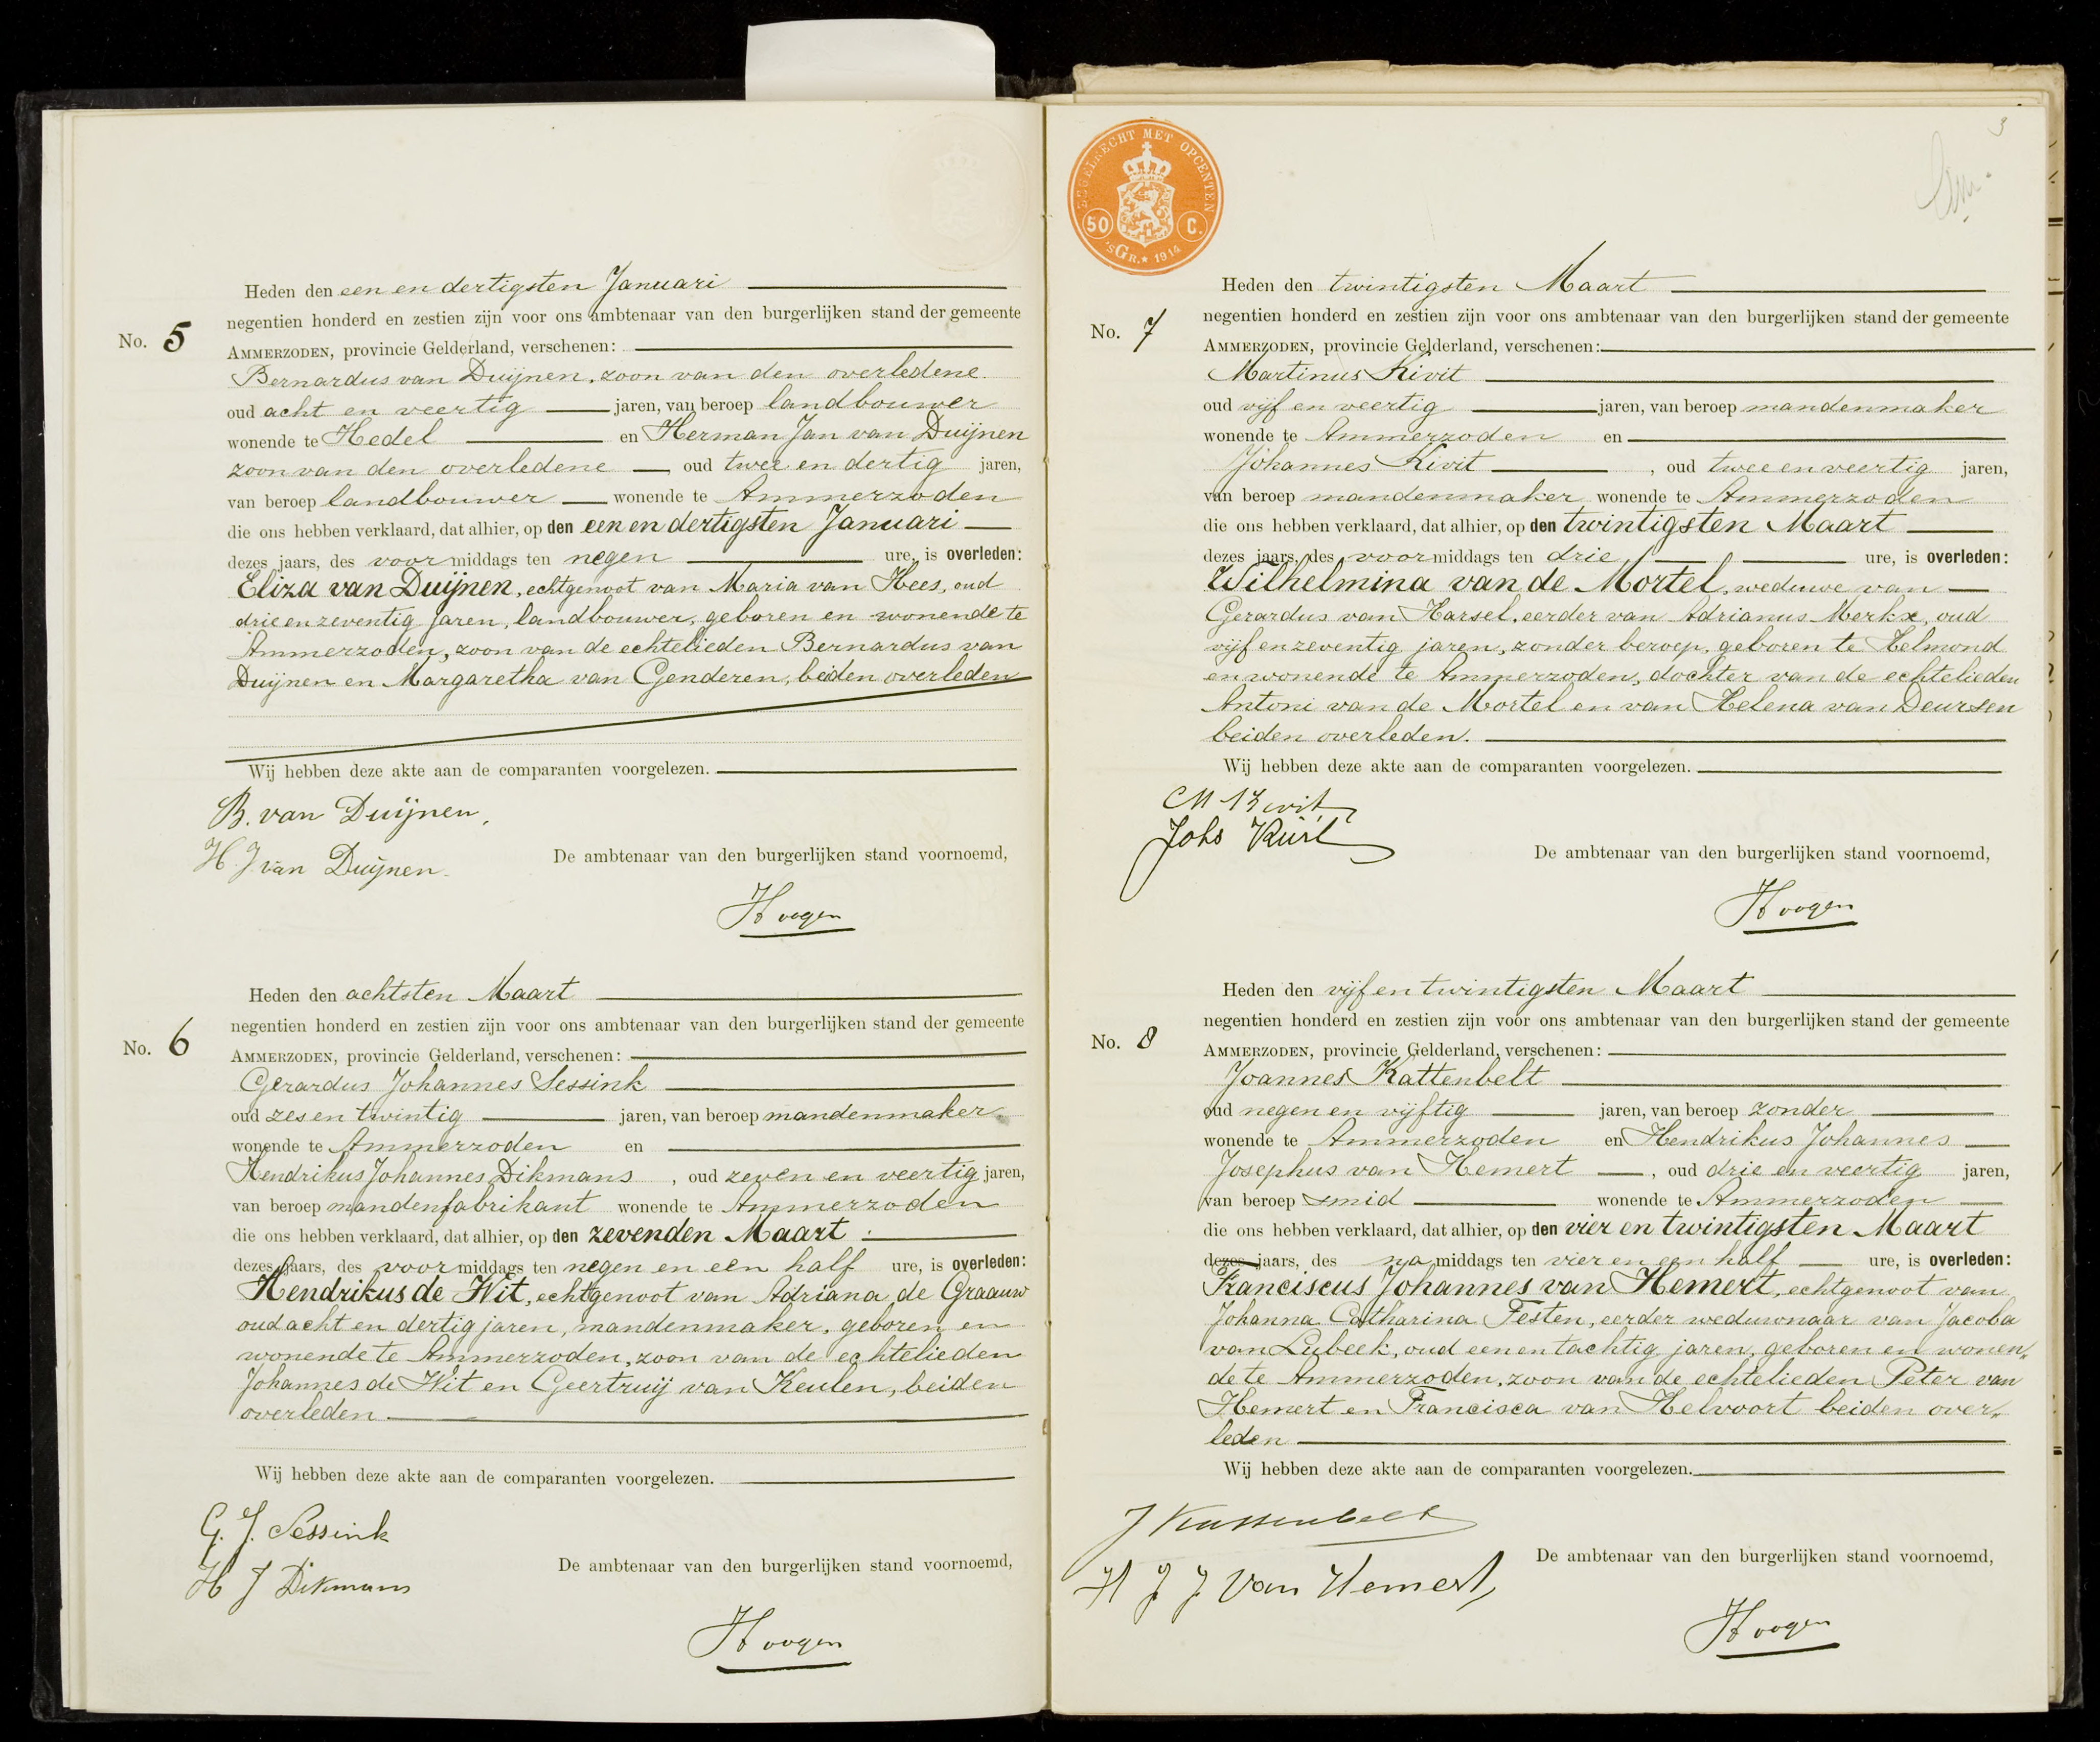 No. 5
Heden den een en dertigsten Januari
negentien honderd en zestien zijn voor ons ambtenaar van den burgerlijken stand der gemeente
AMMERZODEN, provincie Gelderland, verschenen:
Bernardus van Duijnen, zoon van den overledene
oud acht en veertig jaren, van beroep landbouwer
wonende te Hedel en Herman Jan van Duijnen
zoon van den overledene, oud twee en dertig jaren,
van beroep landbouwer wonende te Ammerzoden
die ons hebben verklaard, dat alhier, op den een en dertigsten Januari
dezes jaars, des voormiddags ten negen ure, is overleden:
Eliza van Duijnen, echtgenoot van Maria van Hees, oud
drie en zeventig jaren, landbouwer, geboren en wonende te
Ammerzoden, zoon van de echtelieden Bernardus van
Duijnen en Margaretha van Genderen, beiden overleden
Wij hebben deze akte aan de comparanten voorgelezen.
B. van Duijnen.
H. J. van Duijnen.
De ambtenaar van den burgerlijken stand voornoemd,
Hoogen
No. 6
Heden den achtsten Maart
negentien honderd en zestien zijn voor ons ambtenaar van den burgerlijken stand der gemeente
AMMERZODEN, provincie Gelderland, verschenen:
Gerardus Johannes Sessink
oud zes en twintig jaren, van beroep mandenmaker
wonende te Ammerzoden en
Hendrikus Johannes Dikmans, oud zeven en veertig jaren,
van beroep mandenfabrikant wonende te Ammerzoden
die ons hebben verklaard, dat alhier, op den zevenden Maart
dezes jaars, des voormiddags ten negen en een half ure, is overleden:
Hendrikus de Wit, echtgenoot van Adriana de Graauw
oud acht en dertig jaren, mandenmaker, geboren en
wonende te Ammerzoden, zoon van de echtelieden
Johannes de Wit en Geertruij van Keulen, beiden
overleden
Wij hebben deze akte aan de comparanten voorgelezen.
G. J. Sessink
H J Dikmans
De ambtenaar van den burgerlijken stand voornoemd,
Hoogen
3
ZEGELRECHT MET OPCENTEN
50 C.
'sGR. * 1914
No. 7
Heden den twintigsten Maart
negentien honderd en zestien zijn voor ons ambtenaar van den burgerlijken stand der gemeente
AMMERZODEN, provincie Gelderland, verschenen:
Martinus Kivit
oud vijf en veertig jaren, van beroep mandenmaker
wonende te Ammerzoden en
Johannes Kivit, oud twee en veertig jaren,
van beroep mandenmaker wonende te Ammerzoden
die ons hebben verklaard, dat alhier, op den twintigsten Maart
dezes jaars, des voormiddags ten drie ure, is overleden:
Wilhelmina van de Mortel, weduwe van
Gerardus van Harsel, eerder van Adrianus Merkx, oud
vijf en zeventig jaren, zonder beroep, geboren te Helmond
en wonende te Ammerzoden, dochter van de echtelieden
Antoni van de Mortel en van Helena van Deursen
beiden overleden.
Wij hebben deze akte aan de comparanten voorgelezen.
M Kivit
Johs Kivit
De ambtenaar van den burgerlijken stand voornoemd,
Hoogen
No. 8
Heden den vijf en twintigsten Maart
negentien honderd en zestien zijn voor ons ambtenaar van den burgerlijken stand der gemeente
AMMERZODEN, provincie Gelderland, verschenen:
Joannes Kattenbelt
oud negen en vijftig jaren, van beroep zonder
wonende te Ammerzoden en Hendrikus Johannes
Josephus van Hemert, oud drie en veertig jaren,
van beroep smid wonende te Ammerzoden
die ons hebben verklaard, dat alhier, op den vier en twintigsten Maart
dezes jaars, des namiddags ten vier en een half ure, is overleden:
Franciscus Johannes van Hemert, echtgenoot van
Johanna Catharina Festen, eerder weduwnaar van Jacoba
van Lubeek, oud een en tachtig jaren, geboren en wonen„
de te Ammerzoden, zoon van de echtelieden Peter van
Hemert en Francisca van Helvoort beiden over„
leden
Wij hebben deze akte aan de comparanten voorgelezen.
J Kattenbelt
H J J van Hemert
De ambtenaar van den burgerlijken stand voornoemd,
Hoogen